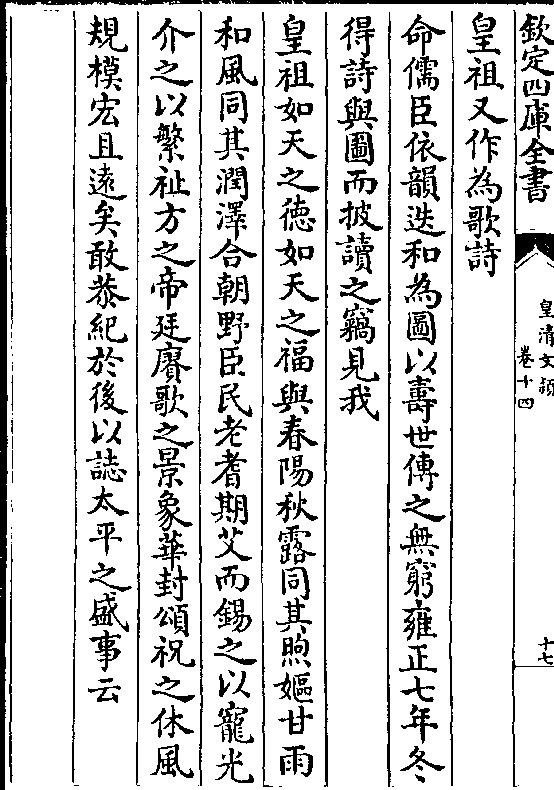 欽定四庫全書
皇清文頴
卷十四
十七
皇祖又作為歌詩
命儒臣依韻迭和為圖以壽世傳之無窮雍正七年冬
得詩與圖而披讀之竊見我
皇祖如天之德如天之福與春陽秋露同其煦嫗甘雨
和風同其潤澤合朝野臣民老耆期艾而錫之以寵光
介之以繁祉方之帝廷賡歌之景象華封頌祝之休風
規模宏且遠矣敢恭紀於後以誌太平之盛事云